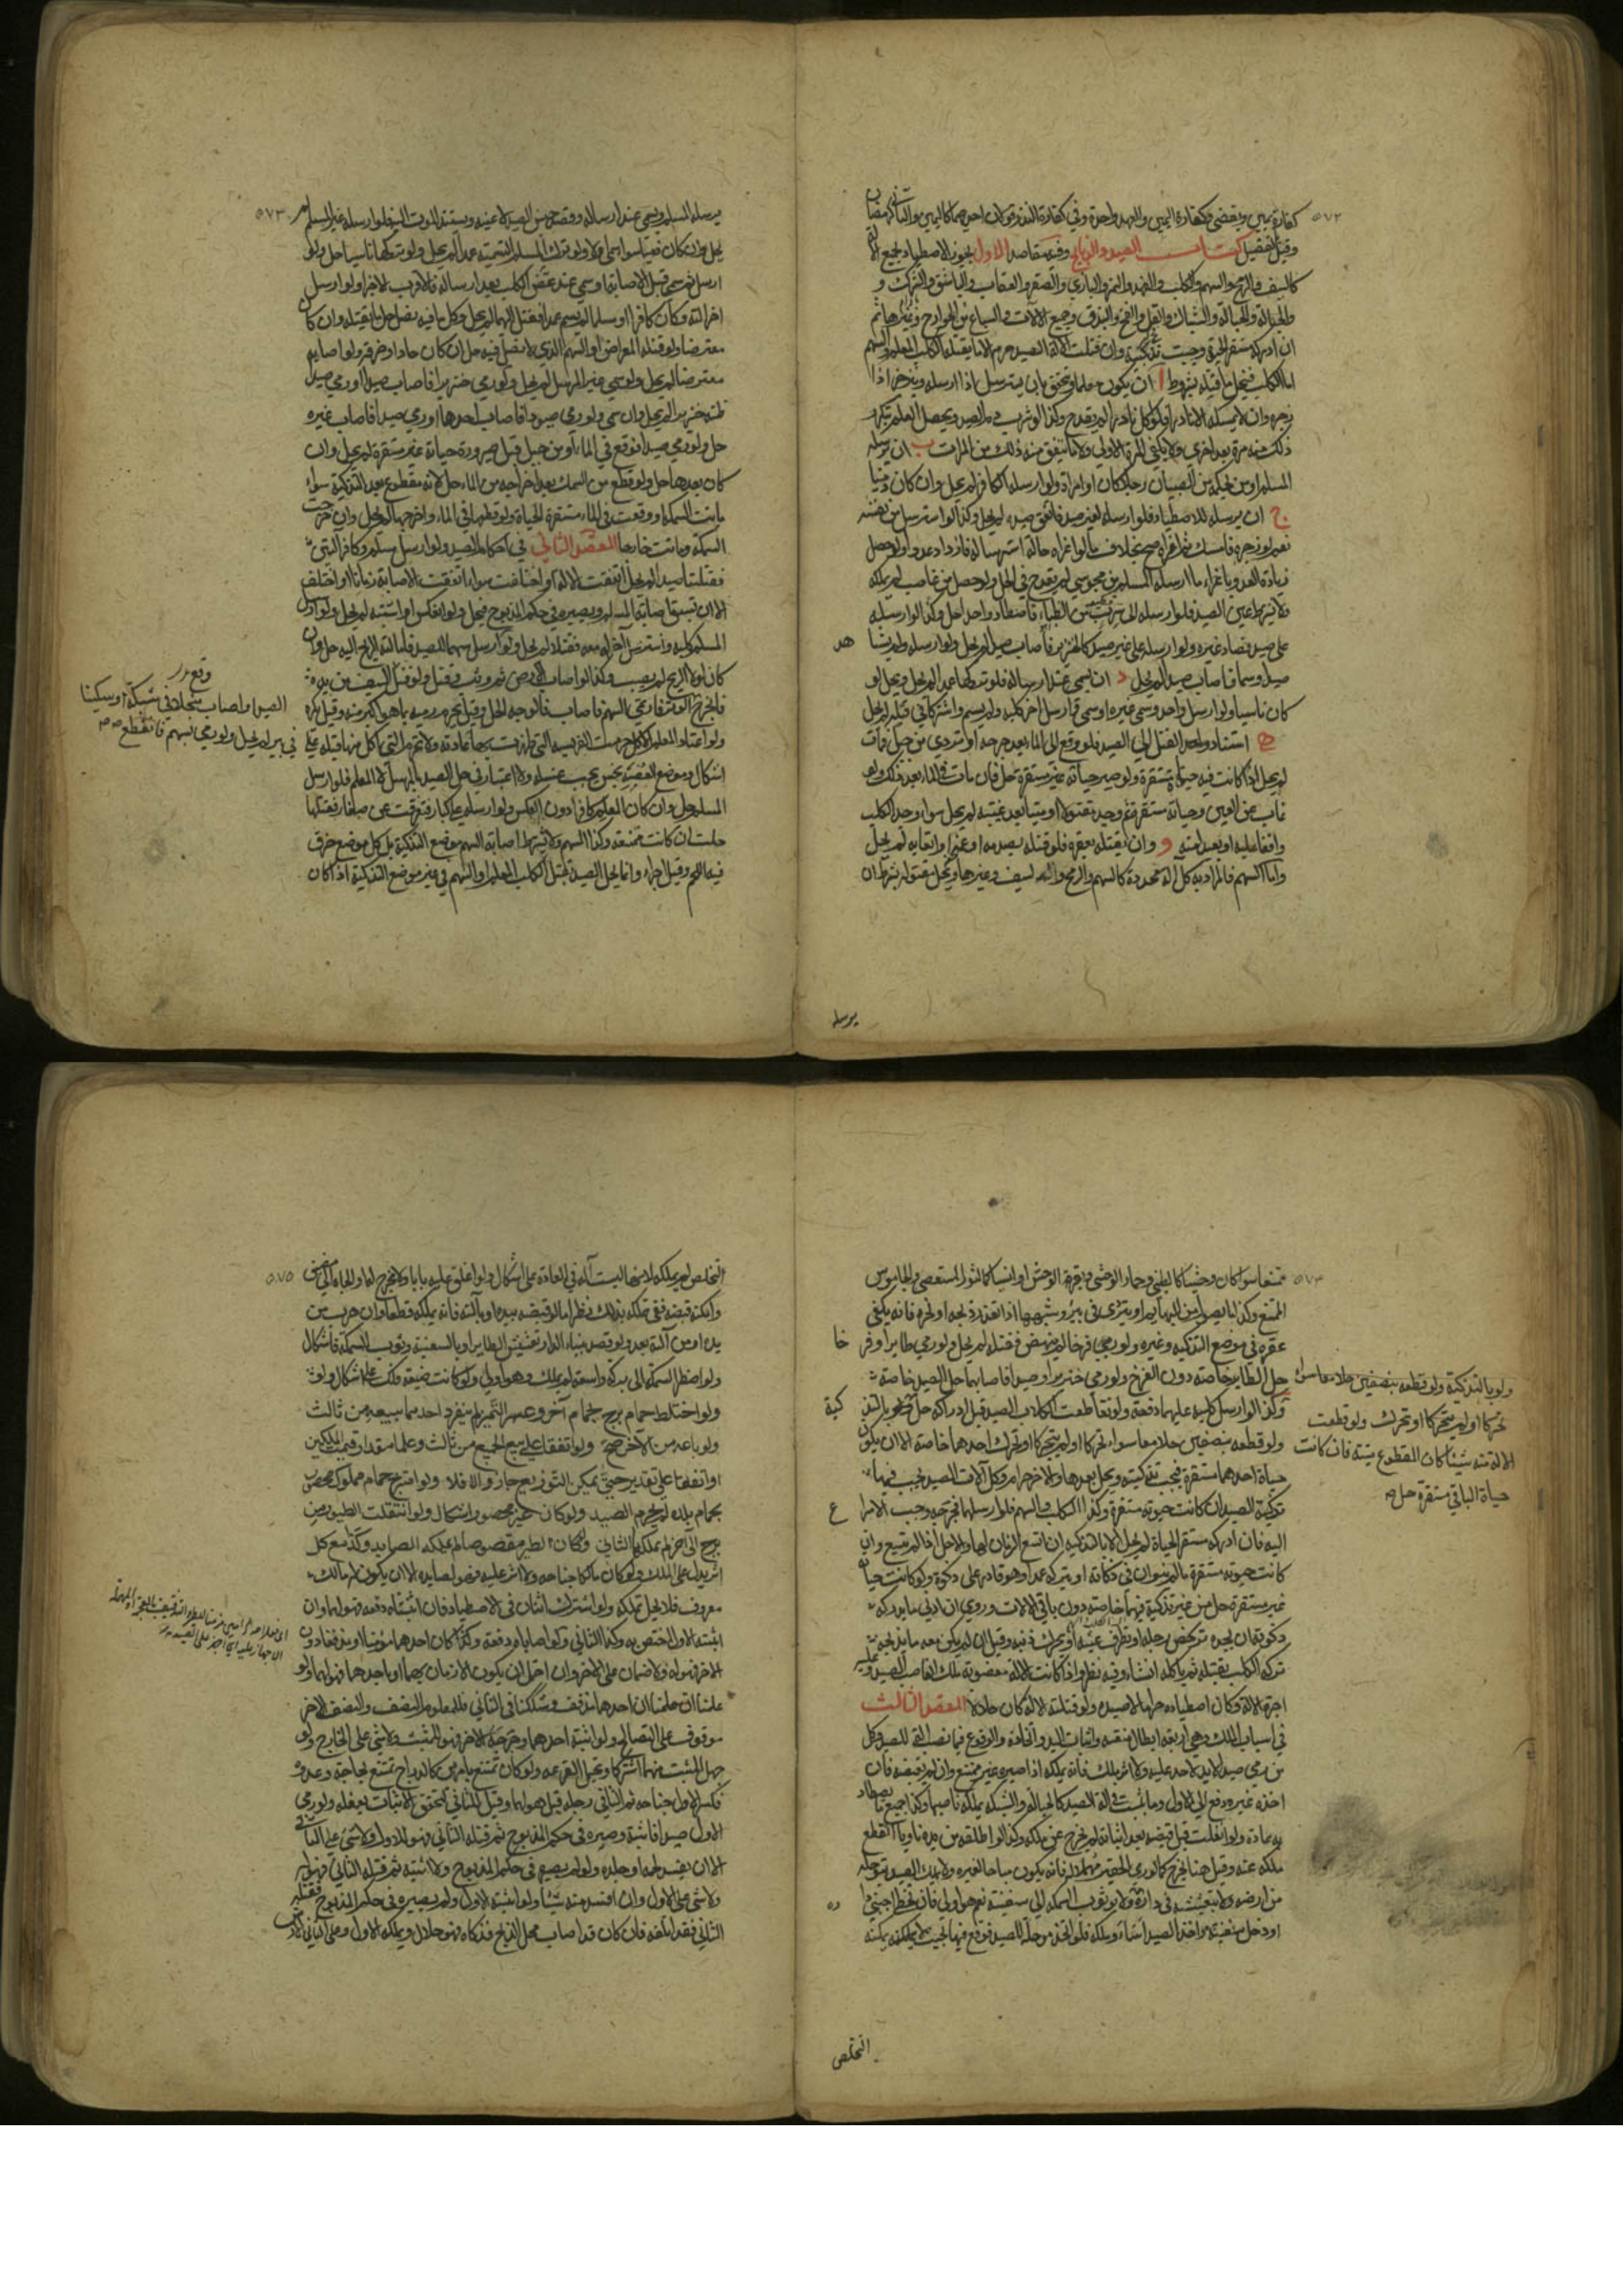 ٥٧٢
كفارة يمين ويقتضي فكفارة اليمين والعهد واحدة وفي كفارة النذر قولان احدهما كاليمين والثاني كرمضان
وقيل بالتفصيل كتاب الصيد والذبايح وفيه مقاصد الاول يجوز الاصطياد بجميع الآلة
كالسيف والرمح والسهم والكلب والفهد والنمر والبازي والصقر والعقاب والباشق والشرك و
والحبالة والشباك والفخ والبندق وجميع الآلات والسباع من الجوارح وغيرها ثم
ان ادركه مستقر الحيوة وجبت تذكيته وان قتلت الآلة الصيد حرم الا ما يقتله الكلب المعلم والسهم
اما الكلب فيحل ما قتله بشروط ا ان يكون معلما ويتحقق بان يسترسل اذا ارسله وينزجر اذا
زجره وان لا يمسكه الا نادرا فلو اكل نادرا لم يقدح وكذا لو شرب دم الصيد ويحصل العلم بتكرر
ذلك منه مرة بعد اخرى ولا يكفي المرة الاولى ولا ما يتفق منه ذلك من المرات ب ان يرسله
المسلم او من بحكمه من الصبيان رجلا كان او امراة ولو ارسله الكافر لم يحل وان كان ذميا
ج ان يرسله للاصطياد فلو ارسله لغير صيد فاتفق صيده لم يحل وكذا لو استرسل من نفسه
نعم لو زجره فامسك ثم اغراه صح بخلاف ما لو اغراه حالة استرساله فازداد عدوا ولو حصل
زيادة العدو باغراء ما ارسله المسلم من مجوسي لم يقدح في الحل ولو حصل من غاصب لم يملكه
ولا يشترط عين الصيد فلو ارسله الى سرب من الظباء فاصطاد واحدا حل وكذا لو ارسله
على صيد فصاد غيره ولو ارسله على غير صيد كالخنزير فاصاب صيدا لم يحل ولو ارسله ولم يشاهد
صيدا وسما فاصاب صيدا لم يحل د ان يسمي عند ارساله فلو تركها عمدا لم يحل ويحل لو
كان ناسيا ولو ارسل واحد وسمى غيره او سمى وارسل اخر كلبه ولم يسم واشتركا في قتله لم يحل
ه استناد القتل الى الصيد فلو وقع في الماء بعد جرحه او تردى من جبل فمات
لم يحل اذا كانت فيه حياة مستقرة ولو صير حياته غير مستقرة حل فان مات في الماء بعد ذلك ولو
غاب عن العين وحياته مستقرة ثم وجده مقتولا او ميتا بعد غيبته لم يحل سواء وجد الكلب
واقفا عليه او بعيدا منه و وان يقتله بعقره فلو قتله بصدمه او غمه او اتعابه لم يحل
واما السهم فالمراد به كل آلة محددة كالسهم والرمح والسيف وغيرها ويحل مقتوله بشرط ان
يرسله
٥٧٣
يرسله المسلم ويسمي عند ارساله وقصد جنس الصيد لا عينه ويستند الموت اليه فلو ارسله غير المسلم لم
يحل وان كان ذميا سواء سمى او لا ولو ترك المسلم التسمية عمدا لم يحل ولو تركها ناسيا حل ولو
ارسل ثم سمى قبل الاصابة او سمى عند عض الكلب بعد ارساله فالاقرب الاجزاء ولو ارسل
اخر آلته وكان كافرا او مسلما لم يسم عمدا فقتل السهمان لم يحل وكل ما فيه نصل حل ما يقتله وان كان
معترضا ولو قتله المعراض او السهم الذي لا نصل فيه حل ان كان حادا وخرقه ولو اصابه
معترضا لم يحل ولو سمى غير المرسل لم يحل ولو رمى خنزيرا فاصاب صيدا او رمى صيدا
ظنه خنزيرا لم يحل وان سمى ولو رمى صيودا فاصاب احدها او رمى صيدا فاصاب غيره
حل ولو رمى صيدا فوقع في الماء او من جبل قبل صيرورة حياته غير مستقرة لم يحل وان
كان بعدها حل ولو قطع من السمك بعد اخراجه من الماء حل لانه مقطوع بعد التذكية سواء
ماتت السمكة او وقعت في الماء مستقرة الحياة ولو قطعها في الماء واخرجها لم يحل وان خرجت
السمكة وماتت خارجا المقصد الثاني في احكام الصيد ولو ارسل مسلم وكافر آلتين
فقتلتا صيدا لم يحل اتفقت الآلة او اختلفت سواء اتفقت الاصابة زمانا او اختلف
الا ان تسبق اصابة المسلم ويصيره في حكم المذبوح فيحل ولو انعكس او اشتبه لم يحل ولو ارسل
المسلم كلبه واسترسل آخر له معه فقتلا لم يحل ولو ارسل سهما للصيد فامالته الريح اليه حل وان
كان لولا الريح لم يصب وكذا لو اصاب الارض ثم وثب فقتل ولو وقع السيف من يده
فانجرح الصيد
ولو اعتاد المعلم الاكل حرمت الفريسة التي ظهرت بها عادته ولا تحرم التي اكل منها قبله على
اشكال وموضع العضة نجس يجب غسله ولا اعتبار في حل الصيد بالمرسل لا المعلم فلو ارسل
المسلم حل وان كان المعلم كافرا دون العكس ولو ارسله على كبار فتفرقت عن صغار فقتلها
حلت ان كانت ممتنعة وكذا السهم ولا يشترط اصابة السهم موضع التذكية بل كل موضع خرق
فيه اللحم وقتل اجزاء وانما يحل الصيد بقتل الكلب المعلم او السهم في غير موضع التذكية اذا كان
الصيد واصاب منجلا في شبكة او سكينا
في بير لم يحل ولو رمى بسهم فانقطع
٥٧٤
ممتنعا سواء كان وحشيا كالظبي وحمار الوحش وبقرة الوحش او انسيا كالثور المستعصي والجاموس
الممتنع وكذا ما يصول من البهايم او يتردى في بير وشبهها اذا تعذر ذبحه او نحره فانه يكفي
عقره في موضع التذكية وغيره ولو رمى فرخا لم ينهض فقتله لم يحل ولو رمى طايرا وفرخا
حل الطاير خاصة دون الفرخ ولو رمى خنزيرا وصيدا فاصابهما حل الصيد خاصة
وكذا لو ارسل كلبه عليهما دفعة ولو تقاطعت الكلاب الصيد قبل ادراكه حل ولو بالتذكية
ولو قطعه بنصفين حلا معا سواء تحركا او لم يتحركا او تحرك احدهما خاصة الا ان يكون
حياة احدهما مستقرة فيجب تذكيته ويحل بعدها والاخر حرام وكل آلات الصيد يجب فيها
تذكية الصيد ان كانت حيوته مستقرة وكذا الكلب والسهم فلو ارسلهما فجرحه وجب الاسراع
اليه فان ادركه مستقر الحياة لم يحل الا بالتذكية ان اتسع الزمان لها والا حل اذا لم يتسع وان
كانت حيوته مستقرة ما لم يتوان في ذكاته او يتركه عمدا وهو قادر على ذكوته ولو كانت حياته
غير مستقرة حل من غير تذكية فيهما خاصة دون باقي الآلات وروي ان ادنى ما يدرك
ذكوته ان يجده تركض رجله او تطرف عينه او يحرك ذنبه وقيل ان لم يكن معه ما يذبحه
ترك الكلب يقتله ثم ياكله ان شاء وفيه نظر واذا كانت الآلة مغصوبة ملك الغاصب الصيد وعليه
اجرة الآلة وكان اصطياده حراما لا صيده ولو قتلته الآلة كان حلالا المقصد الثالث
في اسباب الملك وهي اربعة ابطال منعته واثبات اليد واثخانه والوقوع فيما نصب آلة للصيد وكل
من رمى صيدا لا يد لاحد عليه ولا اثر ملك فانه يملكه اذا صيره غير ممتنع وان لم يقبضه فان
اخذه غيره دفع الى الاول وما يثبت في آلة الصيد كالحبالة والشبكة يملكه ناصبها وكذا جميع ما يصطاد
به عادة ولو انفلت قبل قبضه بعد اثباته لم يخرج عن ملكه وكذا لو اطلقه من يده ناويا لقطع
ملكه عنه وقيل هنا يخرج كما لو رمى الحقير مهملا له فانه يكون مباحا لغيره ولا يملك الصيد بتوحله
من ارضه ولا بتعشيشه في داره ولا بوثوب السمكة الى سفينته نعم هو اولى فان تخطى اجنبي
او دخل سفينته واخذ الصيد اساء وملكه فلو اتخذ موحلة للصيد فوقع فيها بحيث لا يمكنه
ولو بالتذكية ولو قطعه بنصفين حلا معا سواء
تحركا او لم يتحركا او تحرك ولو قطعت
الآلة منه شيئا كان المقطوع ميتة فان كانت
حياة الباقي مستقرة حل
التخلص
٥٧٥
التخلص لم يملكه لانها ليست آلة في العادة على اشكال ولو اغلق عليه بابا ولا مخرج له او الجاه الى مضيق
وامكنه قبضه ففي تملكه بذلك نظر اما لو قبضه بيده او بآلته فانه يملكه قطعا وان هرب من
يده او من آلته بعد ولو قصد ببناء الدار تعشيش الطاير او بالسفينة وثوب السمكة فاشكال
ولو اضطر السمكة الى بركة واسعة لم يملك وهو اولى ولو كانت ضيقة ملك على اشكال ولو
ولو اختلط حمام برج بحمام آخر وعسر التمييز لم ينفرد احدهما ببيعه من ثالث
ولو باعه من الاخر صح ولو اتفقا على بيع الجميع من ثالث وعلما مقدار قيمة الملكين
او اتفقا على تقدير حتى يمكن التوزيع جاز والا فلا ولو امتزج حمام مملوك محصور
بحمام بلدة لم يحرم الصيد ولو كان غير محصور اشكال ولو انتقلت الطيور من
برج الى اخر لم يملكها الثاني ولو كان الطير مقصوصا لم يملكه الصايد وكذا مع كل
اثر يدل على الملك ولو كان مالكا جناحه ولا اثر عليه فهو لصايده الا ان يكون له مالك
معروف فلا يحل تملكه ولو اشترك اثنان في الاصطياد فان اثبتاه دفعة فهو لهما وان
اثبته الاول اختص به وكذا الثاني ولو اصاباه دفعة وكان احدهما مزمنا او مذففا دون
الاخر فهو له ولا ضمان على الاخر وان احتمل ان يكون الازمان بهما او باحدهما فهو لهما ولو
علمنا ان احدهما مذفف وشككنا في الثاني فللمعلوم النصف والنصف الاخر
موقوف على التصالح ولو اثبته احدهما وجرحه الاخر فهو للمثبت ولا شيء على الجارح ولو
جهل المثبت منهما اشتركا ويحتمل القرعة ولو كان يمتنع بامرين كالدراج يمتنع بجناحه وعدوه
فكسر الاول جناحه ثم الثاني رجله قيل هو لهما وقيل للثاني لتحقق الاثبات بفعله ولو رمى
الاول صيدا فاثبته وصيره في حكم المذبوح ثم قتله الثاني فهو للاول ولا شيء على الثاني
الا ان يفسد لحمه او جلده ولو لم يصيره في حكم المذبوح ولا اثبته ثم قتله الثاني فهو له
ولا شيء على الاول وان افسد منه شيئا ولو اثبته الاول ولم يصيره في حكم المذبوح فقتله
الثاني فقد اتلفه فان كان قد اصاب محل الذبح فذكاه فهو حلال ويملكه الاول وعلى الثاني الارش